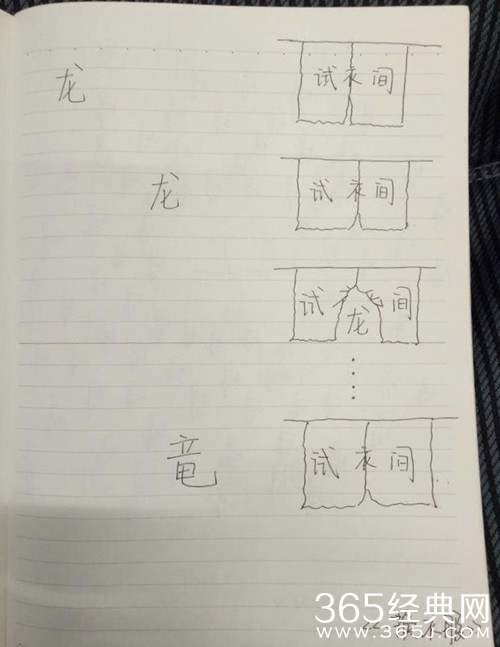 龙 试衣间
龙 试衣间
试衣间
龙
竜 试衣间
365经典网
www.365jz.com